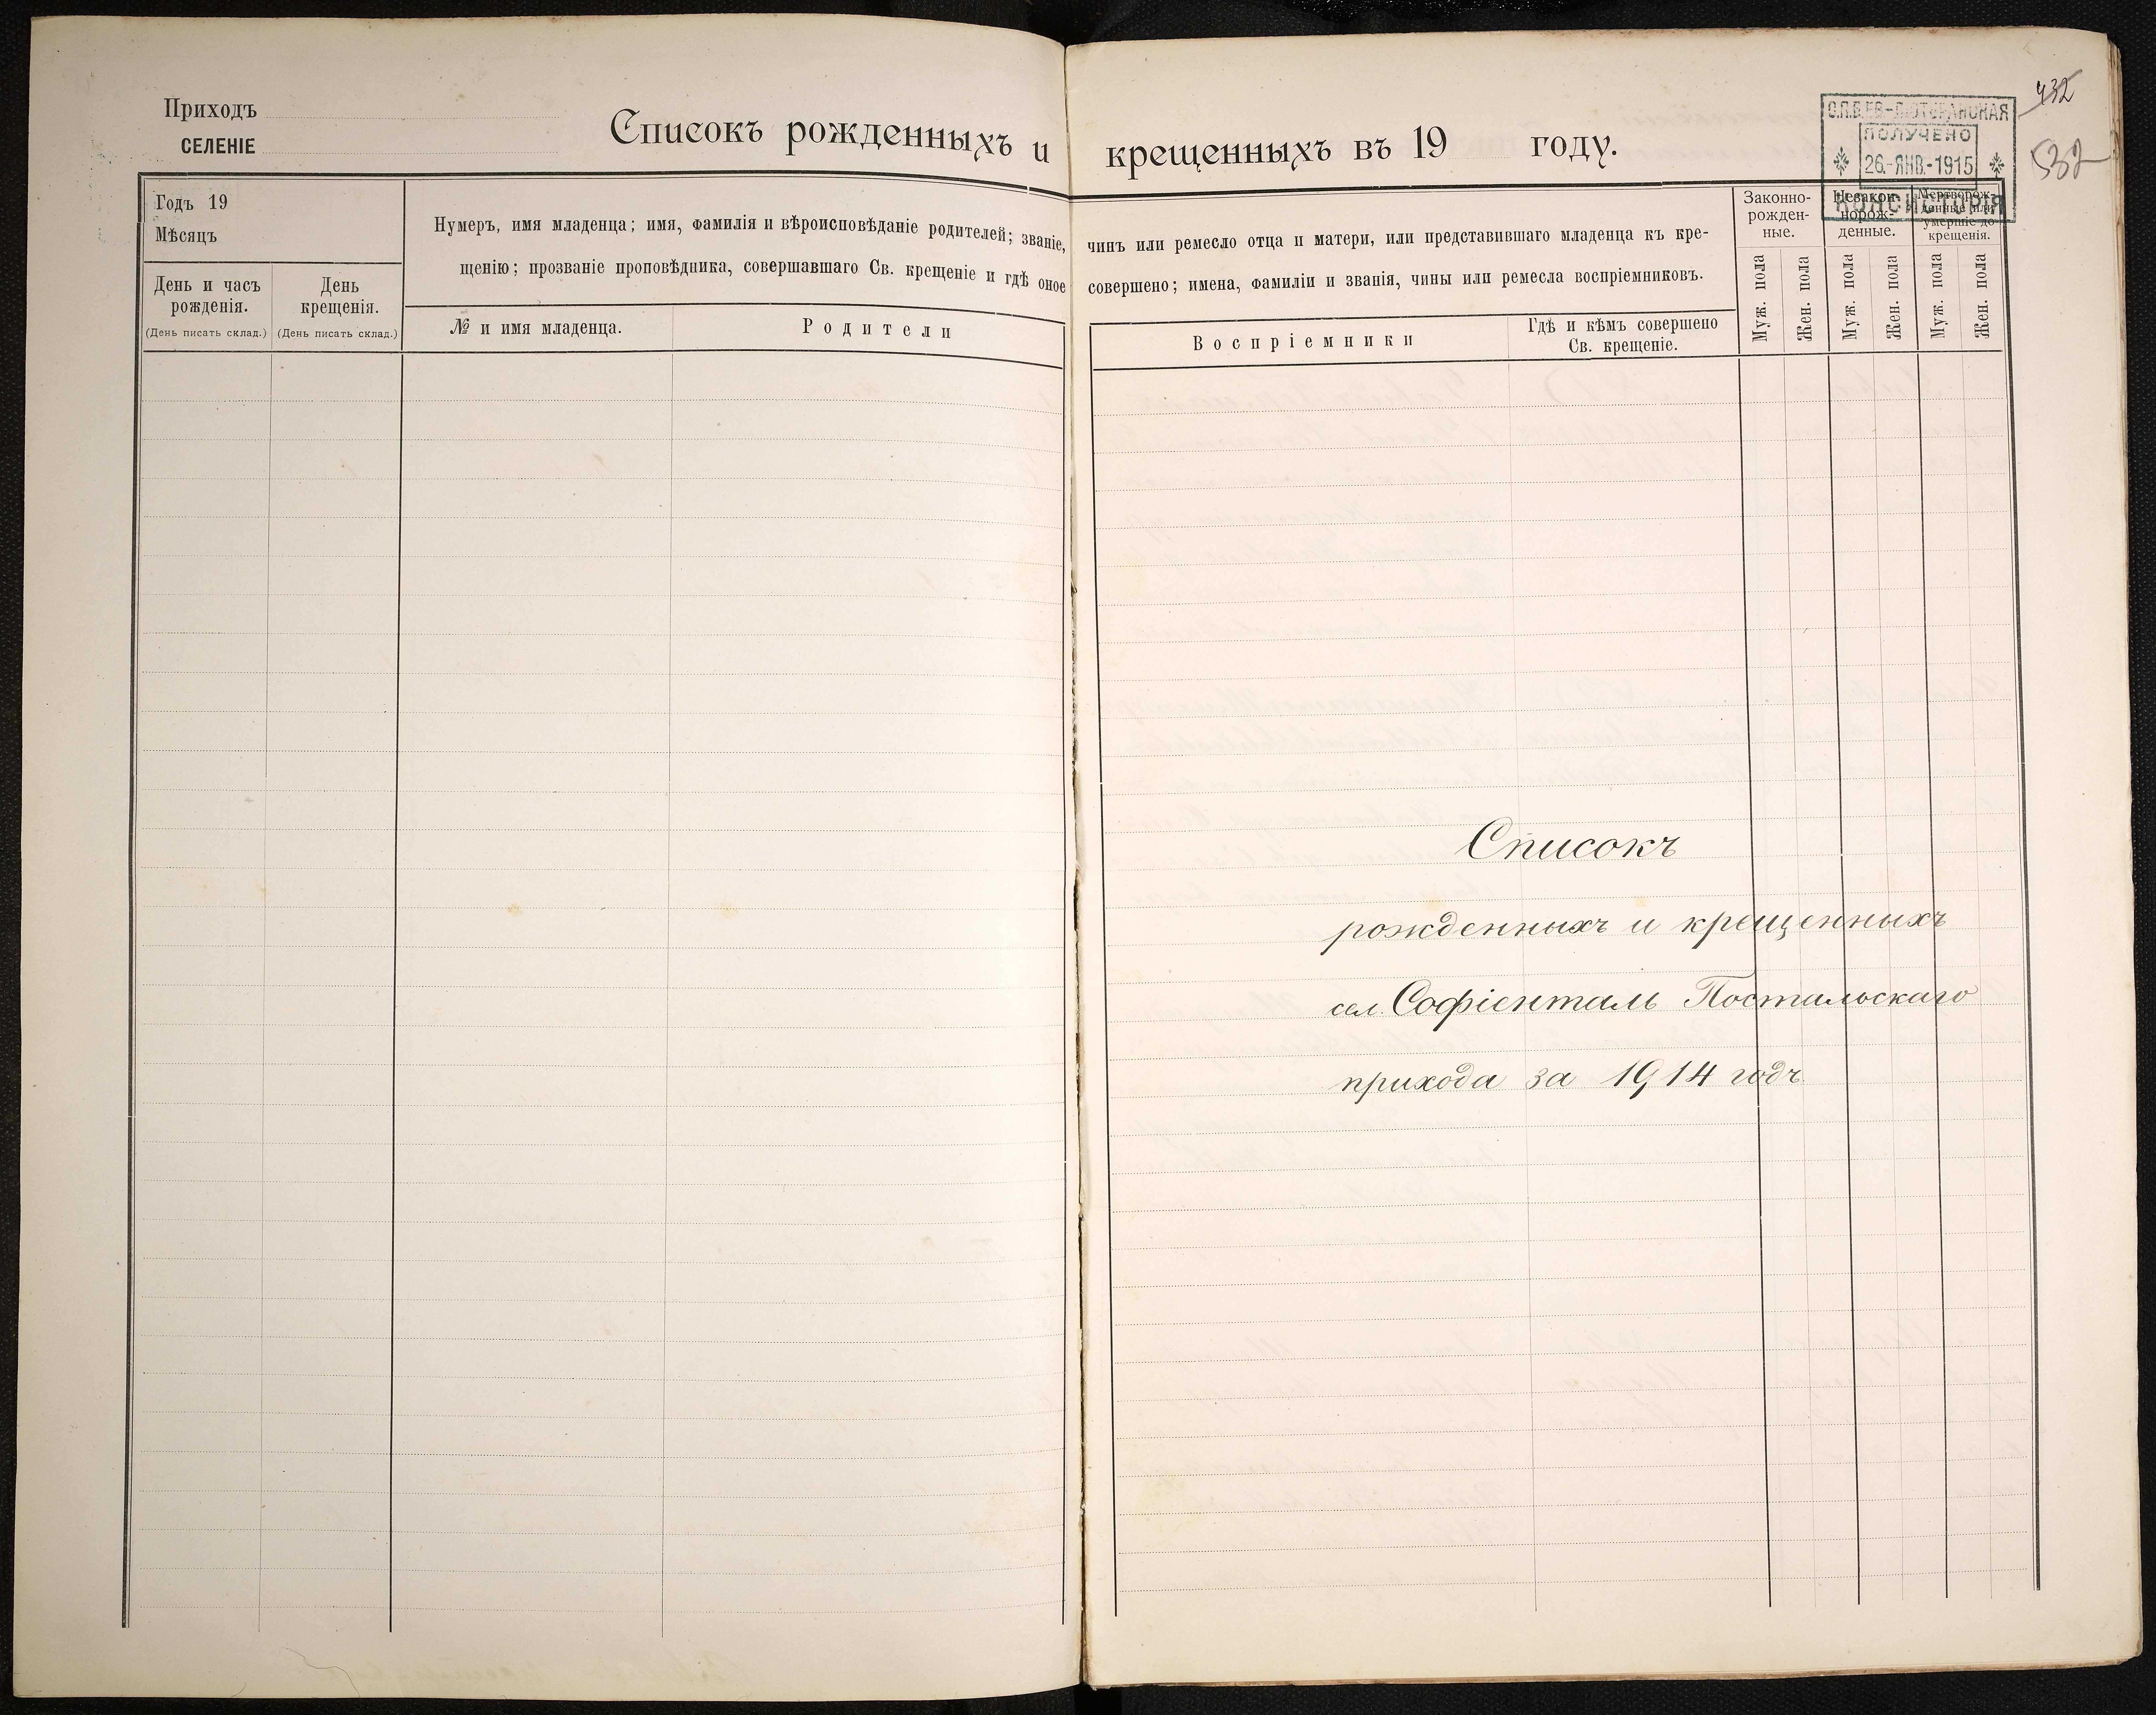 Приходъ
СЕЛЕНІЕ
Списокъ рожденныхъ и крещенныхъ въ 19 году.
432
532
С.П.Б.ЕВ.-ЛЮТЕРАНСКАЯ
ПОЛУЧЕНО
26.-ЯНВ.-1915
КОНСИСТОРІЯ
Годъ 19
Мѣсяцъ
День и часъ рожденія.
(День писать склад.)
День крещенія.
(День писать склад.)
Нумеръ, имя младенца; имя, фамилія и вѣроисповѣданіе родителей; званіе, чинъ или ремесло отца и матери, или представившаго младенца къ кре-
щенію; прозваніе проповѣдника, совершавшаго Св. крещеніе и гдѣ оное совершено; имена, фамиліи и званія, чины или ремесла воспріемниковъ.
№ и имя младенца.
Родители
Воспріемники
Гдѣ и кѣмъ совершено
Св. крещеніе.
Законно-
рожден-
ные.
Незакон-
норож-
денные.
Мертворож-
денные или
умершіе до
крещенія.
Муж. пола
Жен. пола
Муж. пола
Жен. пола
Муж. пола
Жен. пола
Списокъ
рожденныхъ и крещенныхъ
сел. Софіенталь Постальскаго
прихода за 1914 годъ